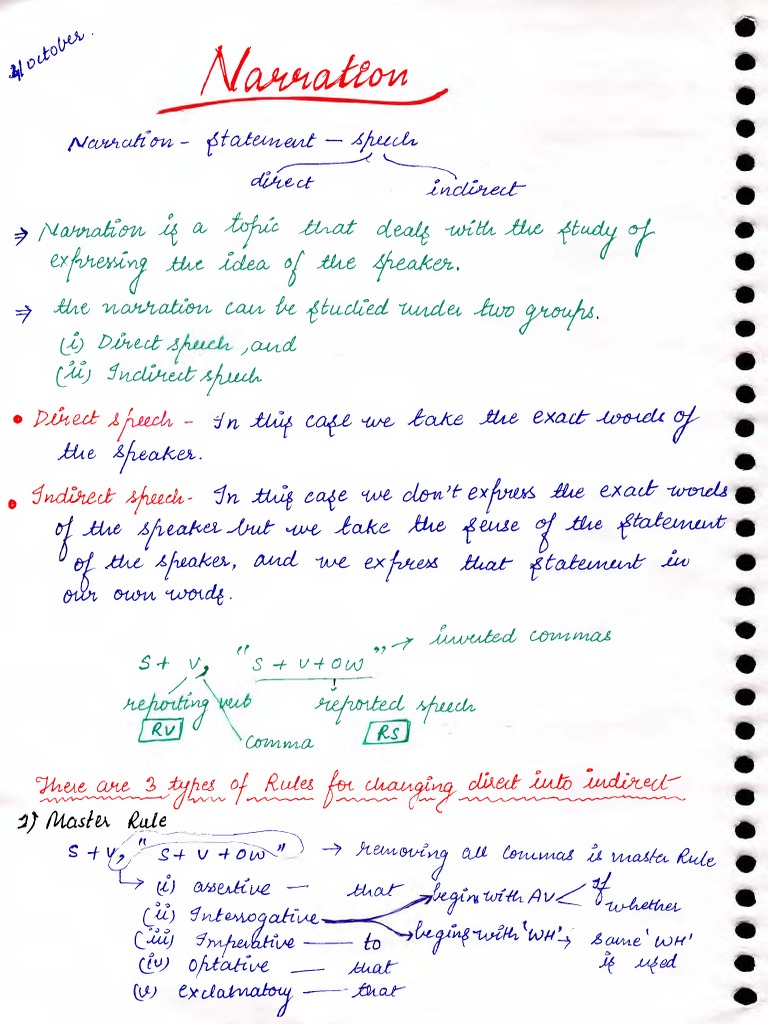 October.
Narration
Narration - Statement - speech
direct indirect
⇒ Narration is a topic that deals with the study of
expressing the idea of the speaker.
⇒ the narration can be studied under two groups.
(i) Direct speech, and
(ii) Indirect speech
• Direct speech - In this case we take the exact words of
the speaker.
• Indirect speech - In this case we don't express the exact words
of the speaker but we take the sense of the statement
of the speaker, and we express that statement in
our own words.
S + V, "S + V + OW" → inverted commas
reporting verb reported speech
RV comma RS
There are 3 types of Rules for changing direct into indirect
1) Master Rule
S + V, "S + V + OW" → removing all commas is master Rule
(i) assertive — that begin with AV < If
(ii) Interrogative whether
(iii) Imperative — to begins with 'WH' → same 'WH'
(iv) Optative — that is used
(v) Exclamatory — that